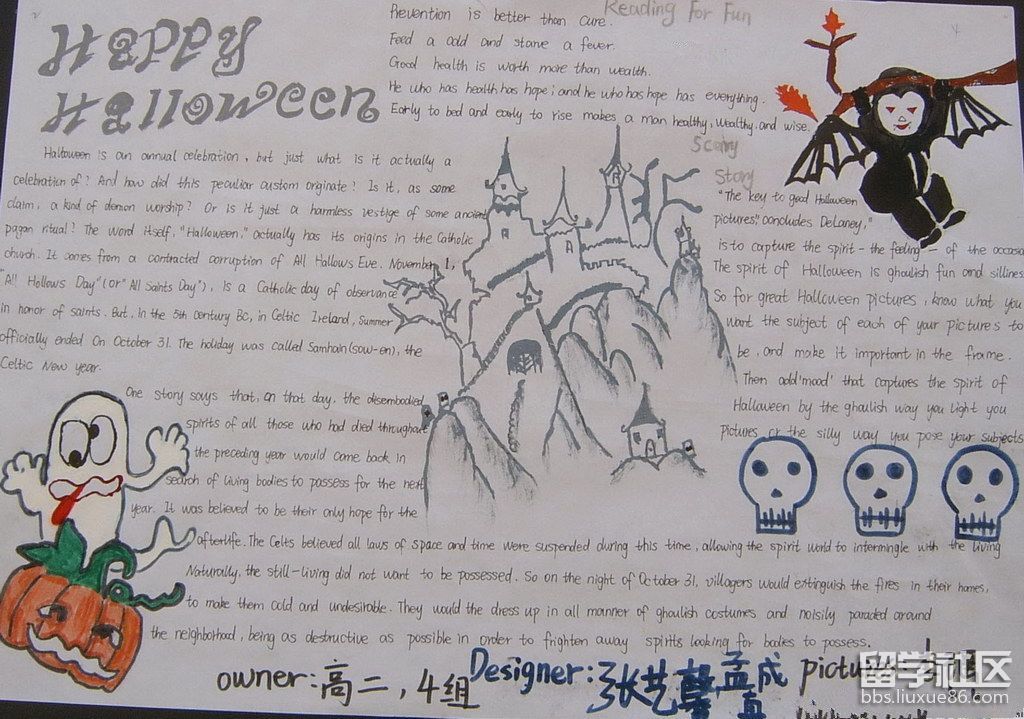 Happy
Halloween
Prevention is better than cure.
Reading For Fun
Feed a cold and starve a fever.
Good health is worth more than wealth.
He who has health has hope; and he who has hope has everything.
Early to bed and early to rise makes a man healthy, wealthy and wise.
Halloween is an annual celebration, but just what is it actually a
celebration of? And how did this peculiar custom originate? Is it, as some
claim, a kind of demon worship? Or is it just a harmless vestige of some ancient
pagan ritual? The word itself, "Halloween," actually has its origins in the Catholic
church. It comes from a contracted corruption of All Hallows Eve. November 1,
"All Hollows Day" (or "All Saints Day"), is a Catholic day of observance
in honor of saints. But, in the 5th century BC, in Celtic Ireland, summer
officially ended On October 31. The holiday was called Samhain (sow-en), the
Celtic New year.
One story says that, on that day, the disembodied
spirits of all those who had died throughout
the preceding year would come back in
search of living bodies to possess for the next
year. It was believed to be their only hope for the
afterlife. The Celts believed all laws of space and time were suspended during this time, allowing the spirit world to intermingle with the living
Naturally, the still-living did not want to be possessed. So on the night of October 31, villagers would extinguish the fires in their homes,
to make them cold and undesirable. They would the dress up in all manner of ghoulish costumes and noisily paraded around
the neighborhood, being as destructive as possible in order to frighten away spirits looking for bodies to possess.
Scary
Story
"The key to good Halloween
pictures," concludes DeLaney,"
is to capture the spirit - the feeling - of the occasion
The spirit of Halloween is ghoulish fun and silliness
So for great Halloween pictures, know what you
want the subject of each of your pictures to
be, and make it important in the frame.
Then add 'mood' that captures the spirit of
Halloween by the ghoulish way you light you
pictures or the silly way you pose your subjects
owner: 高二, 4组
Designer: 张艺馨 孟成真
picture:
留学社区
bbs.liuxue86.com